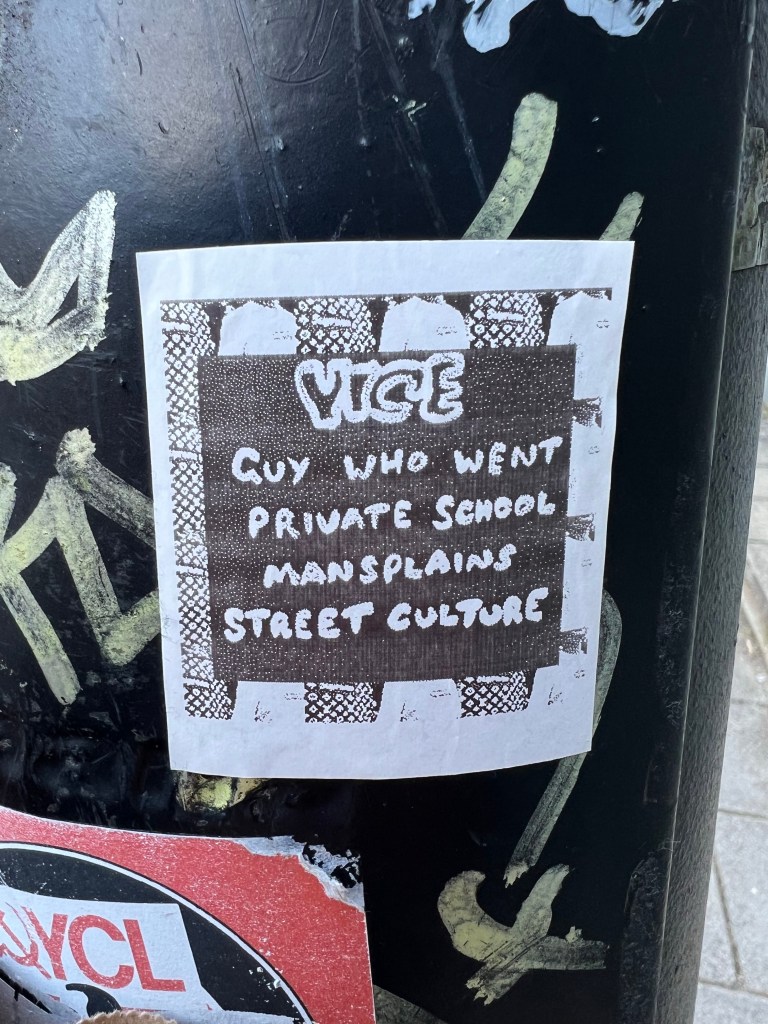 VICE
GUY WHO WENT
PRIVATE SCHOOL
MANSPLAINS
STREET CULTURE
YCL